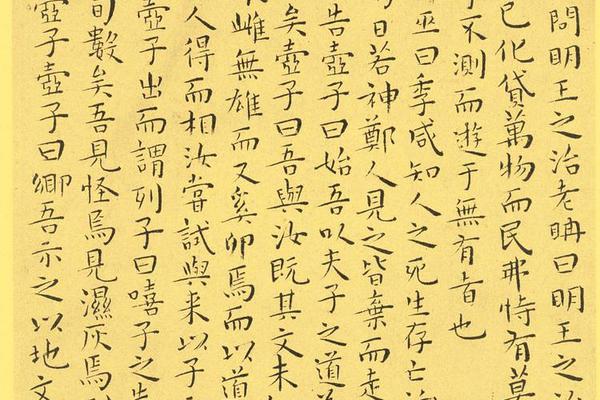 問明王之治老聃曰明王之
已化貸萬物而民弗恃有莫
不測而遊于無有者也
巫曰季咸知人之死生存亡
日若神鄭人見之皆棄而走
告壺子曰始吾以夫子之道
矣壺子曰吾與汝既其文未
雌無雄而又奚卵焉而以道
人得而相汝嘗試與来以予
壺子出而謂列子曰嘻子之
旬數矣吾見怪焉見濕灰焉
壺子壺子曰鄉吾示之以地文